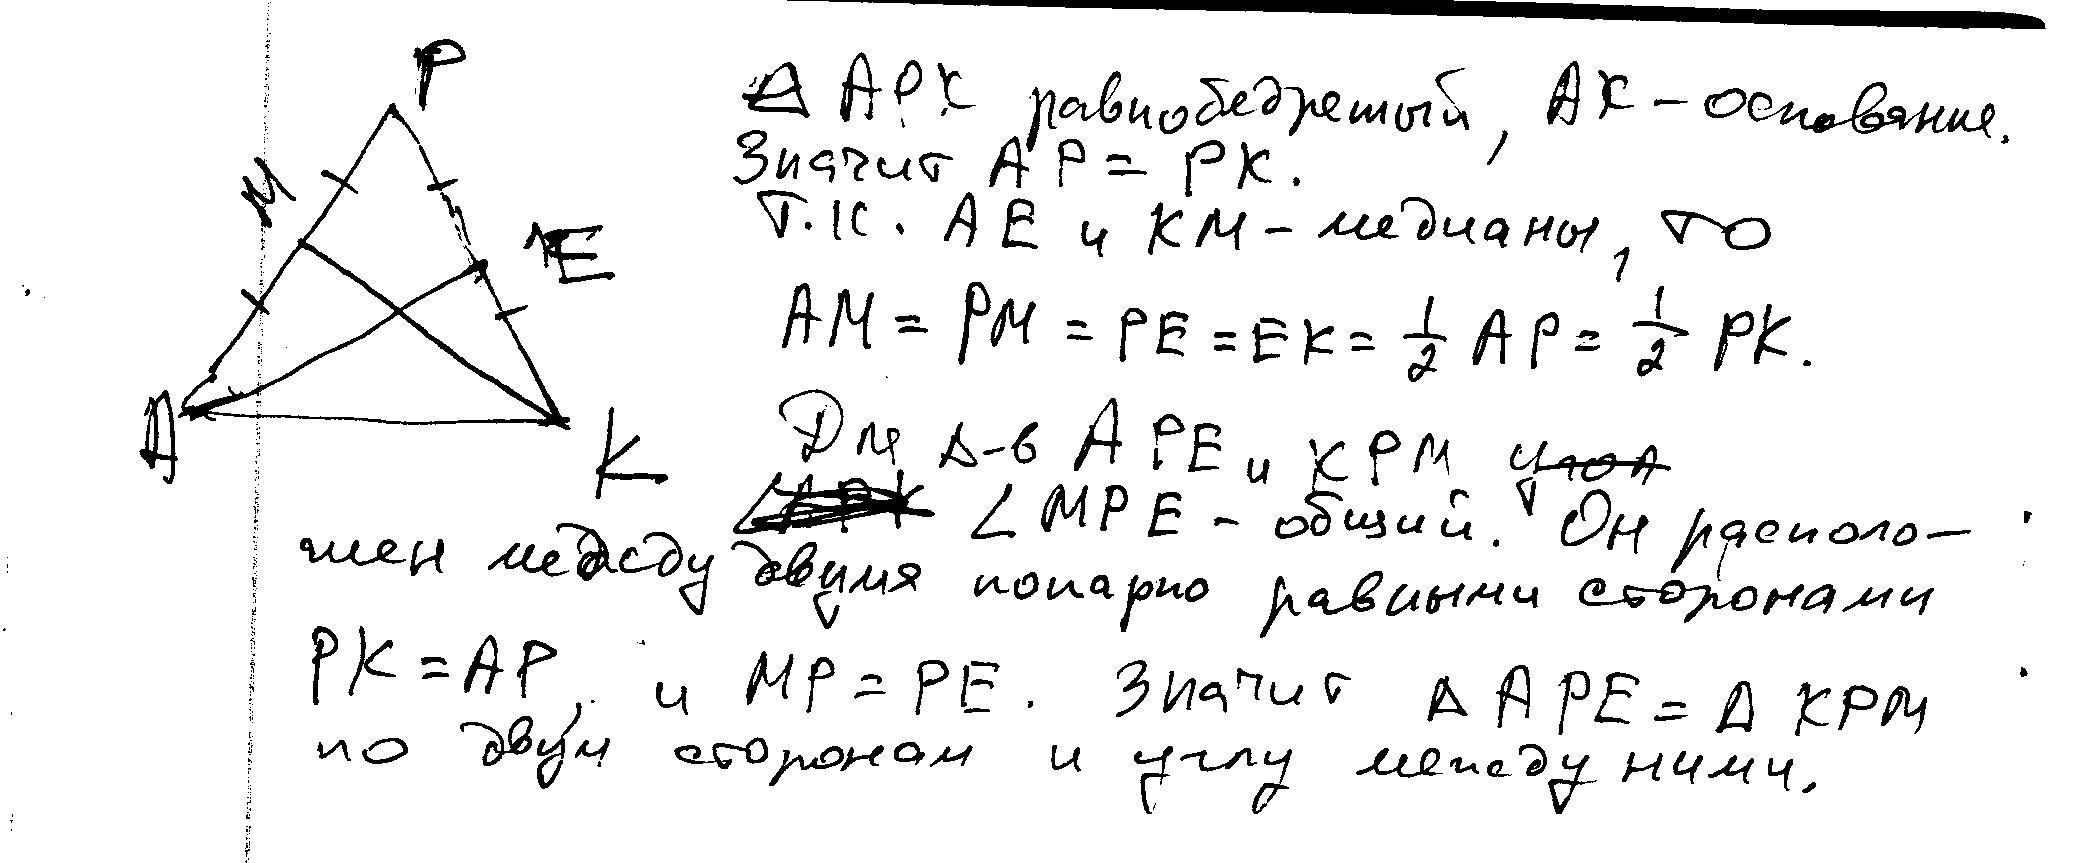 P
M
E
A
K
Δ APK равнобедренный, AK – основание.
Значит AP = PK.
Т.к. AE и KM – медианы, то
AM = PM = PE = EK = 1/2 AP = 1/2 PK.
Для Δ-в APE и KPM угол
∠APK ∠MPE – общий. Он располо-
жен между двумя попарно равными сторонами
PK = AP и MP = PE. Значит Δ APE = Δ KPM
по двум сторонам и углу между ними.